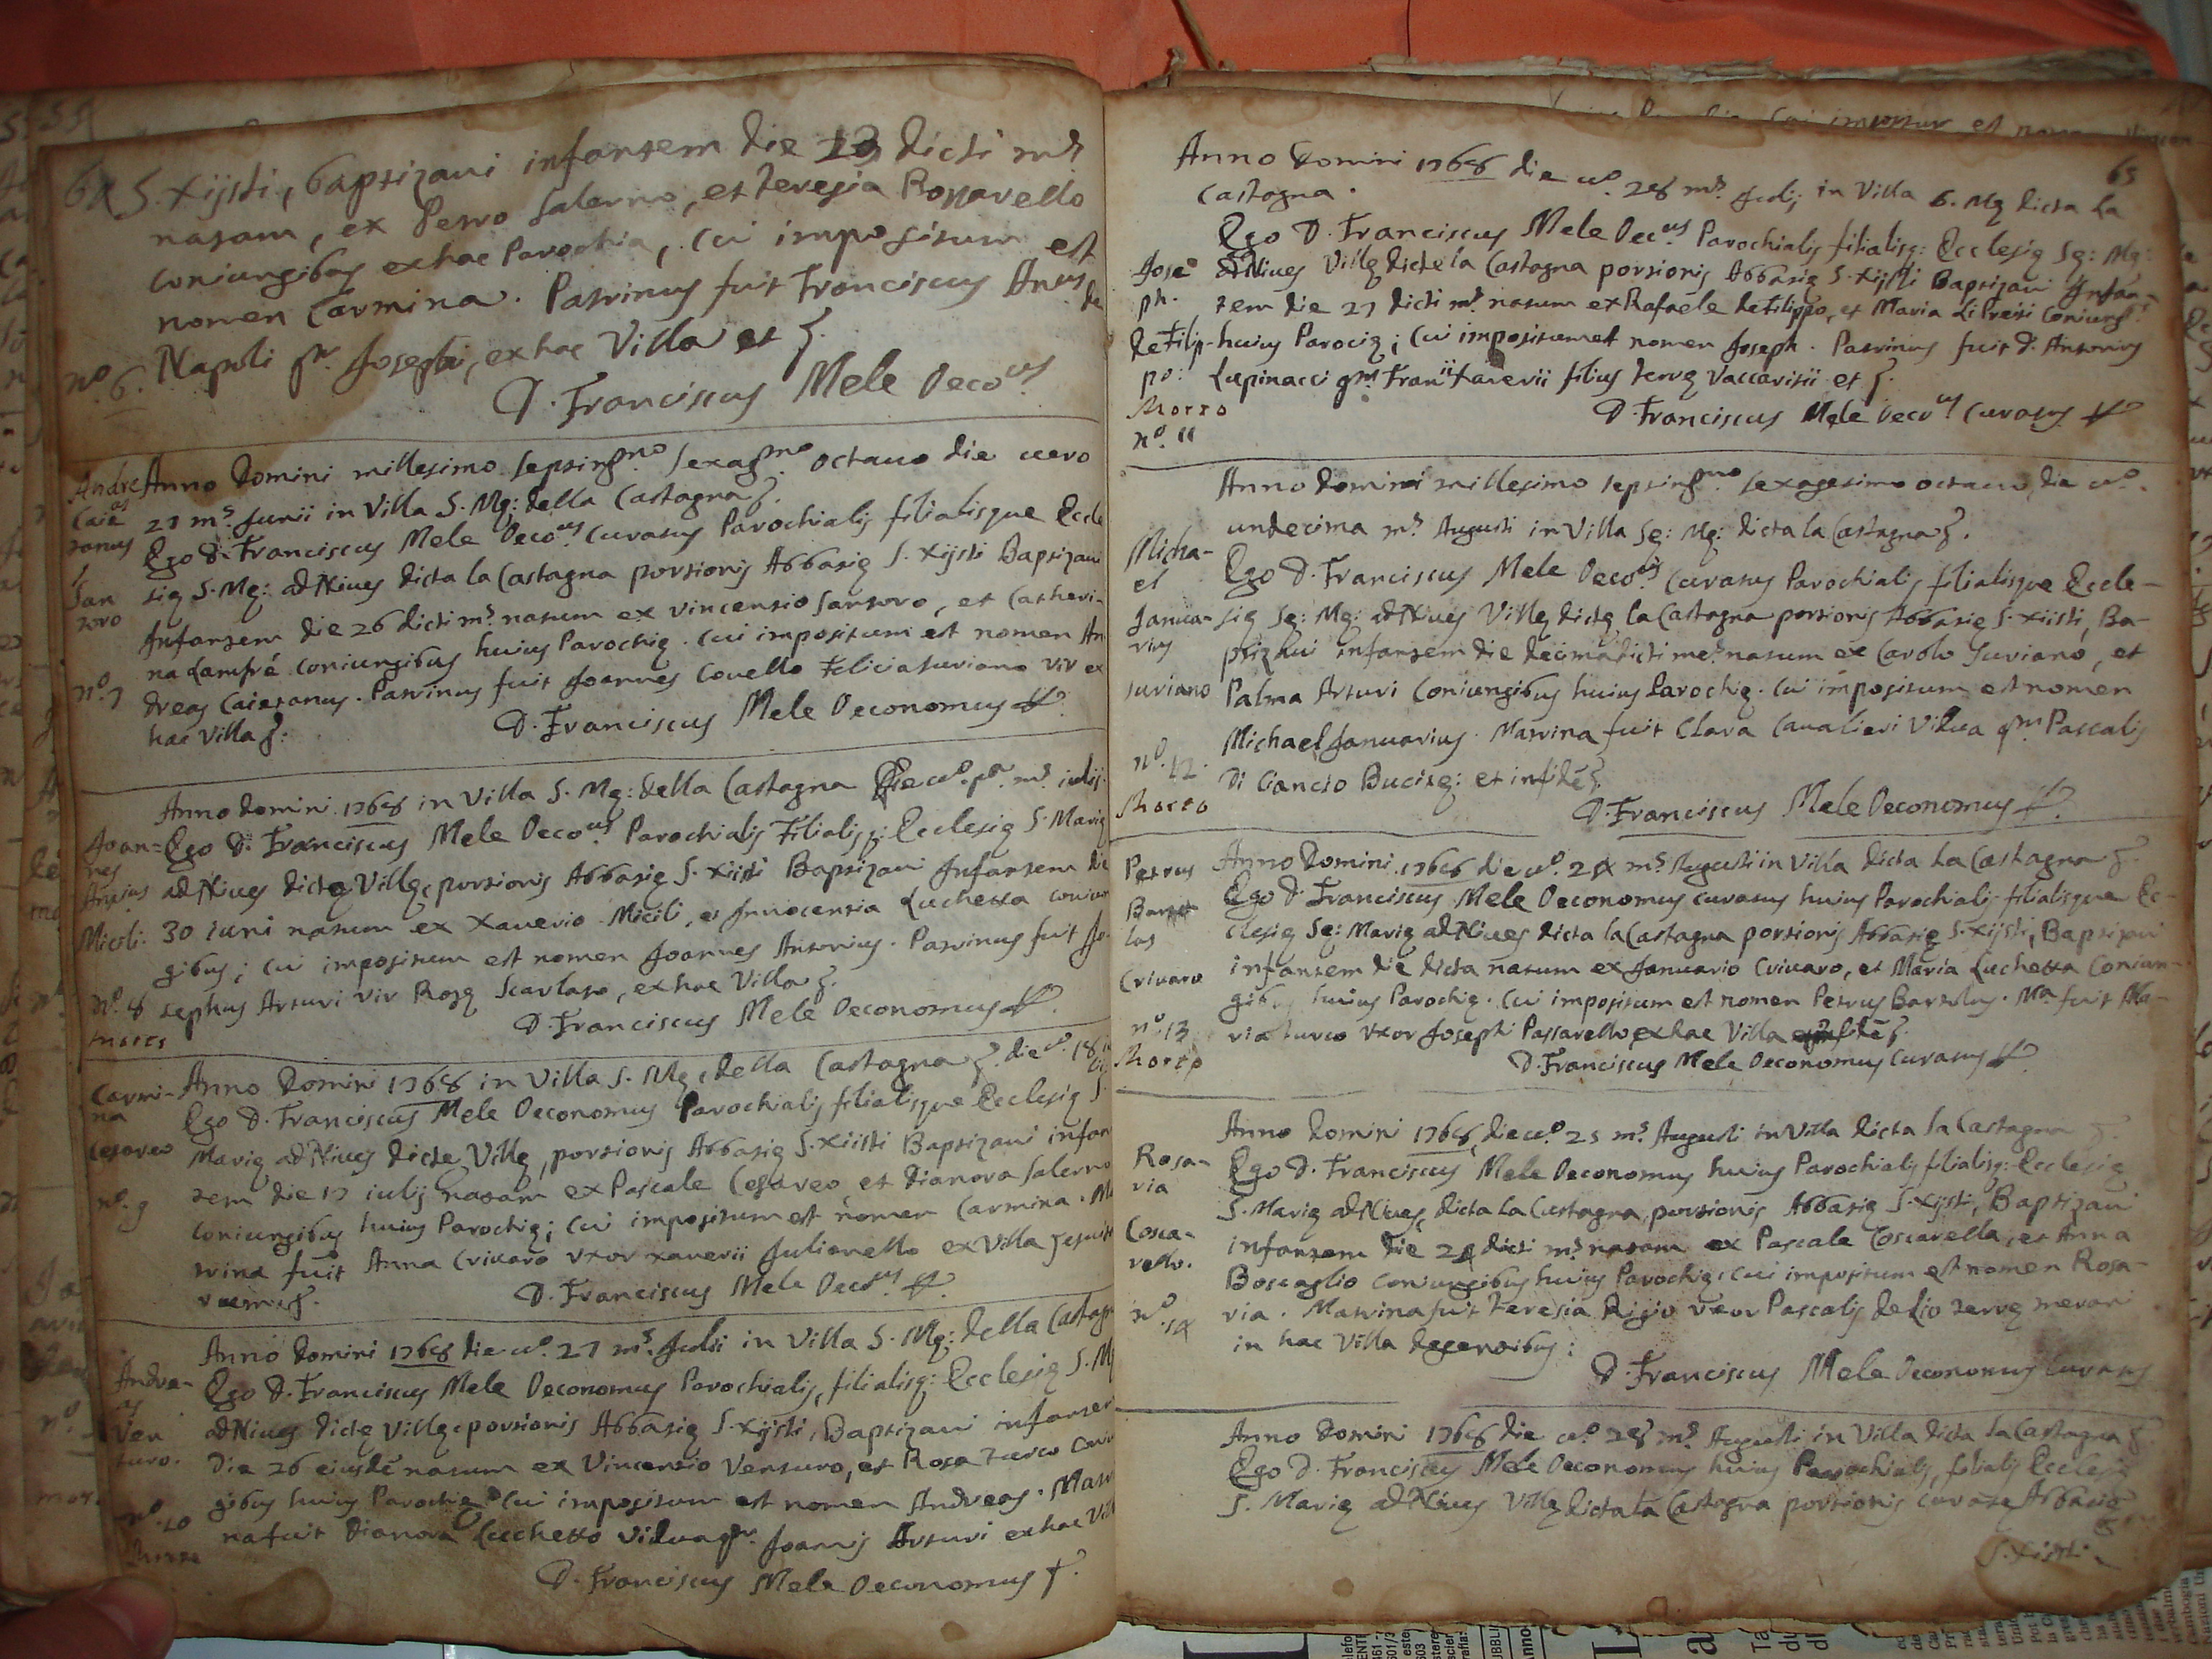 64 S. Xijsti, baptizavi infantem die 13 dicti m.s
natam, ex Petro Salerno, et Teresia
coniungibus ex hac Parochia, cui impositum est
nomen Carmina. Patrinus fuit Franciscus Ant.us de
nº. 6. Napoli q.m Josephi, ex hac Villa et
D. Franciscus Mele Oeco.us
Andre Anno Domini millesimo septing.mo sexag.mo octavo die vero
Caie
27 m.s Junii in Villa S. Mę: della Castagna
tanus
Ego D. Franciscus Mele Oeco.us Curatus Parochialis filialisque Eccle
się S. Mę: ad Nives dicta la Castagna portionis Abbatię S. Xijsti Baptizavi
San
toro
Infantem die 26 dicti m.s natum ex Vincentio Santoro, et Catheri-
na Lanfré coniungibus huius Parochię. Cui impositum est nomen An
nº. 7
dreas Caietanus. Patrinus fuit Joannes Covello Felicia Suriano vir ex
hac Villa
D. Franciscus Mele Oeconomus
Anno Domini 1768 in Villa S. Mę: della Castagna Die v.º p.a m.s iulij
Joan= Ego D. Franciscus Mele Oeco.us Parochialis Filialisq: Ecclesię S. Marię
nes
Antius ad Nives dictę Villę, portionis Abbatię S. Xiisti Baptizavi Infantem die
Micili: 30 iuni natum ex Xaverio Micili, et Innocentia Luchetta coniun
gibus; cui impositum est nomen Joannes Antonius. Patrinus fuit Jo
nº. 8 sephus Arturi vir Rosę Scarlato, ex hac Villa
D. Franciscus Mele Oeconomus
Carmi- Anno Domini 1768 in Villa S. Mę, della Castagna die v.º 18
na
Ego D. Franciscus Mele Oeconomus Parochialis filialisque Ecclesię S
Cesareo Marię ad Nives dictę Villę, portionis Abbatię S. Xiisti Baptizavi infan
nº. 9
tem die 17 iulij natam ex Pascale Cesareo, et Dianora Salerno
coniungibus huius Parochię; cui impositum est nomen Carmina. Ma
trina fuit Anna Crivaro uxor Xaverii Julianello ex Villa
D. Franciscus Mele Oeco.us
Anno Domini 1768 die v.º 27 m.s Julii in Villa S. Mę: della Castagn
Andre-
as
Ego D. Franciscus Mele Oeconomus Parochialis, filialisq: Ecclesię S. M
Ven
turo.
ad Nives dictę Villę, portionis Abbatię S. Xijsti, Baptizavi infantem
Die 26 eiusdē natum ex Vincentio Venturo, et Rosa Turco coniun
gibus huius Parochię. Cui impositum est nomen Andreas. Matri
nº. 10
na fuit Dianora Luchetta vidua q.m Joannis Arturi ex hac Vil
D. Franciscus Mele Oeconomus
65
Anno Domini 1768 die v.º 28 m.s Julij in Villa S. Mę dicta la
Castagna.
Ego D. Franciscus Mele Oec.us Parochialis filialisq: Ecclesię Sę: Mę:
Jose
ad Nives Villę dictę la Castagna portionis Abbatię S. Xijsti Baptizavi Infan-
ph.
tem die 27 dicti m.s natum ex Rafaele de Filippo, et Maria
de Filip- huius Parocię; cui impositum est nomen Joseph. Patrinus fuit D. Antonius
po:
Lupinacci q.m Xaverii filius
Morto
D. Franciscus Mele Oeco.us Curatus
nº. 11
Anno Domini millesimo septing.mo sexagesimo octavo, die v.º
undecima m.s Augusti in Villa Sę: Mę: dicta la Castagna.
Micha-
el
Ego D. Franciscus Mele Oeco.us Curatus Parochialis filialisque Eccle-
Janua- się Sę: Mę: ad Nives Villę dictę la Castagna portionis Abbatię S. Xiisti, Ba-
rius
ptizavi infantem die decima dicti me.s natum ex Carolo Suriano, et
Suriano Palma Arturi coniungibus huius Parochię. Cui impositum est nomen
Michael Januarius. Matrina fuit Clara Cavalieri Vidua q.m Pascalis
nº. 12.
Di Cancio et in fidē
Morto
D. Franciscus Mele Oeconomus
Petrus Anno Domini 1768 die v.º 24 m.s Augusti in Villa dicta la Castagna
Ego D. Franciscus Mele Oeconomus curatus huius Parochialis filialisque Ec-
Barto
lus
clesię Sę: Marię ad Nives dicta la Castagna portionis Abbatię S. Xijsti, Baptizavi
Crivaro infantem die dicta natum ex Januario Crivaro, et Maria Luchetta Coniun-
gibus huius Parochię. Cui impositum est nomen Petrus Bartolus. M.a fuit Ma-
nº. 13
ria Turco uxor Joseph Passarello ex hac Villa
Morto
D. Franciscus Mele Oeconomus Curatus
Anno Domini 1768, die v.º 25 m.s Augusti in Villa dicta la Castagna
Rosa-
ria
Ego D. Franciscus Mele Oeconomus huius Parochialis filialisq: Ecclesię
S. Marię ad Nives, dicta la Castagna, portionis Abbatię S. Xijsti, Baptizavi
Cosca-
rello.
infantem die 24 dicti m.s natam ex Pascale Coscarella, et Anna
Boscaglio coniungibus huius Parochię, cui impositum est nomen Rosa-
nº. 14
ria. Matrina fuit Teresia Rigio uxor Pascalis de Lio
in hac Villa degentibus:
D. Franciscus Mele Oeconomus Curatus
Anno Domini 1768 die v.º 28 m.s Augusti in Villa dicta la Castagna
Ego D. Franciscus Mele Oeconomus huius Parochialis, filialis Ecclesię
S. Marię ad Nives Villę dicta la Castagna portionis curatę Abbatię
S. Xisti